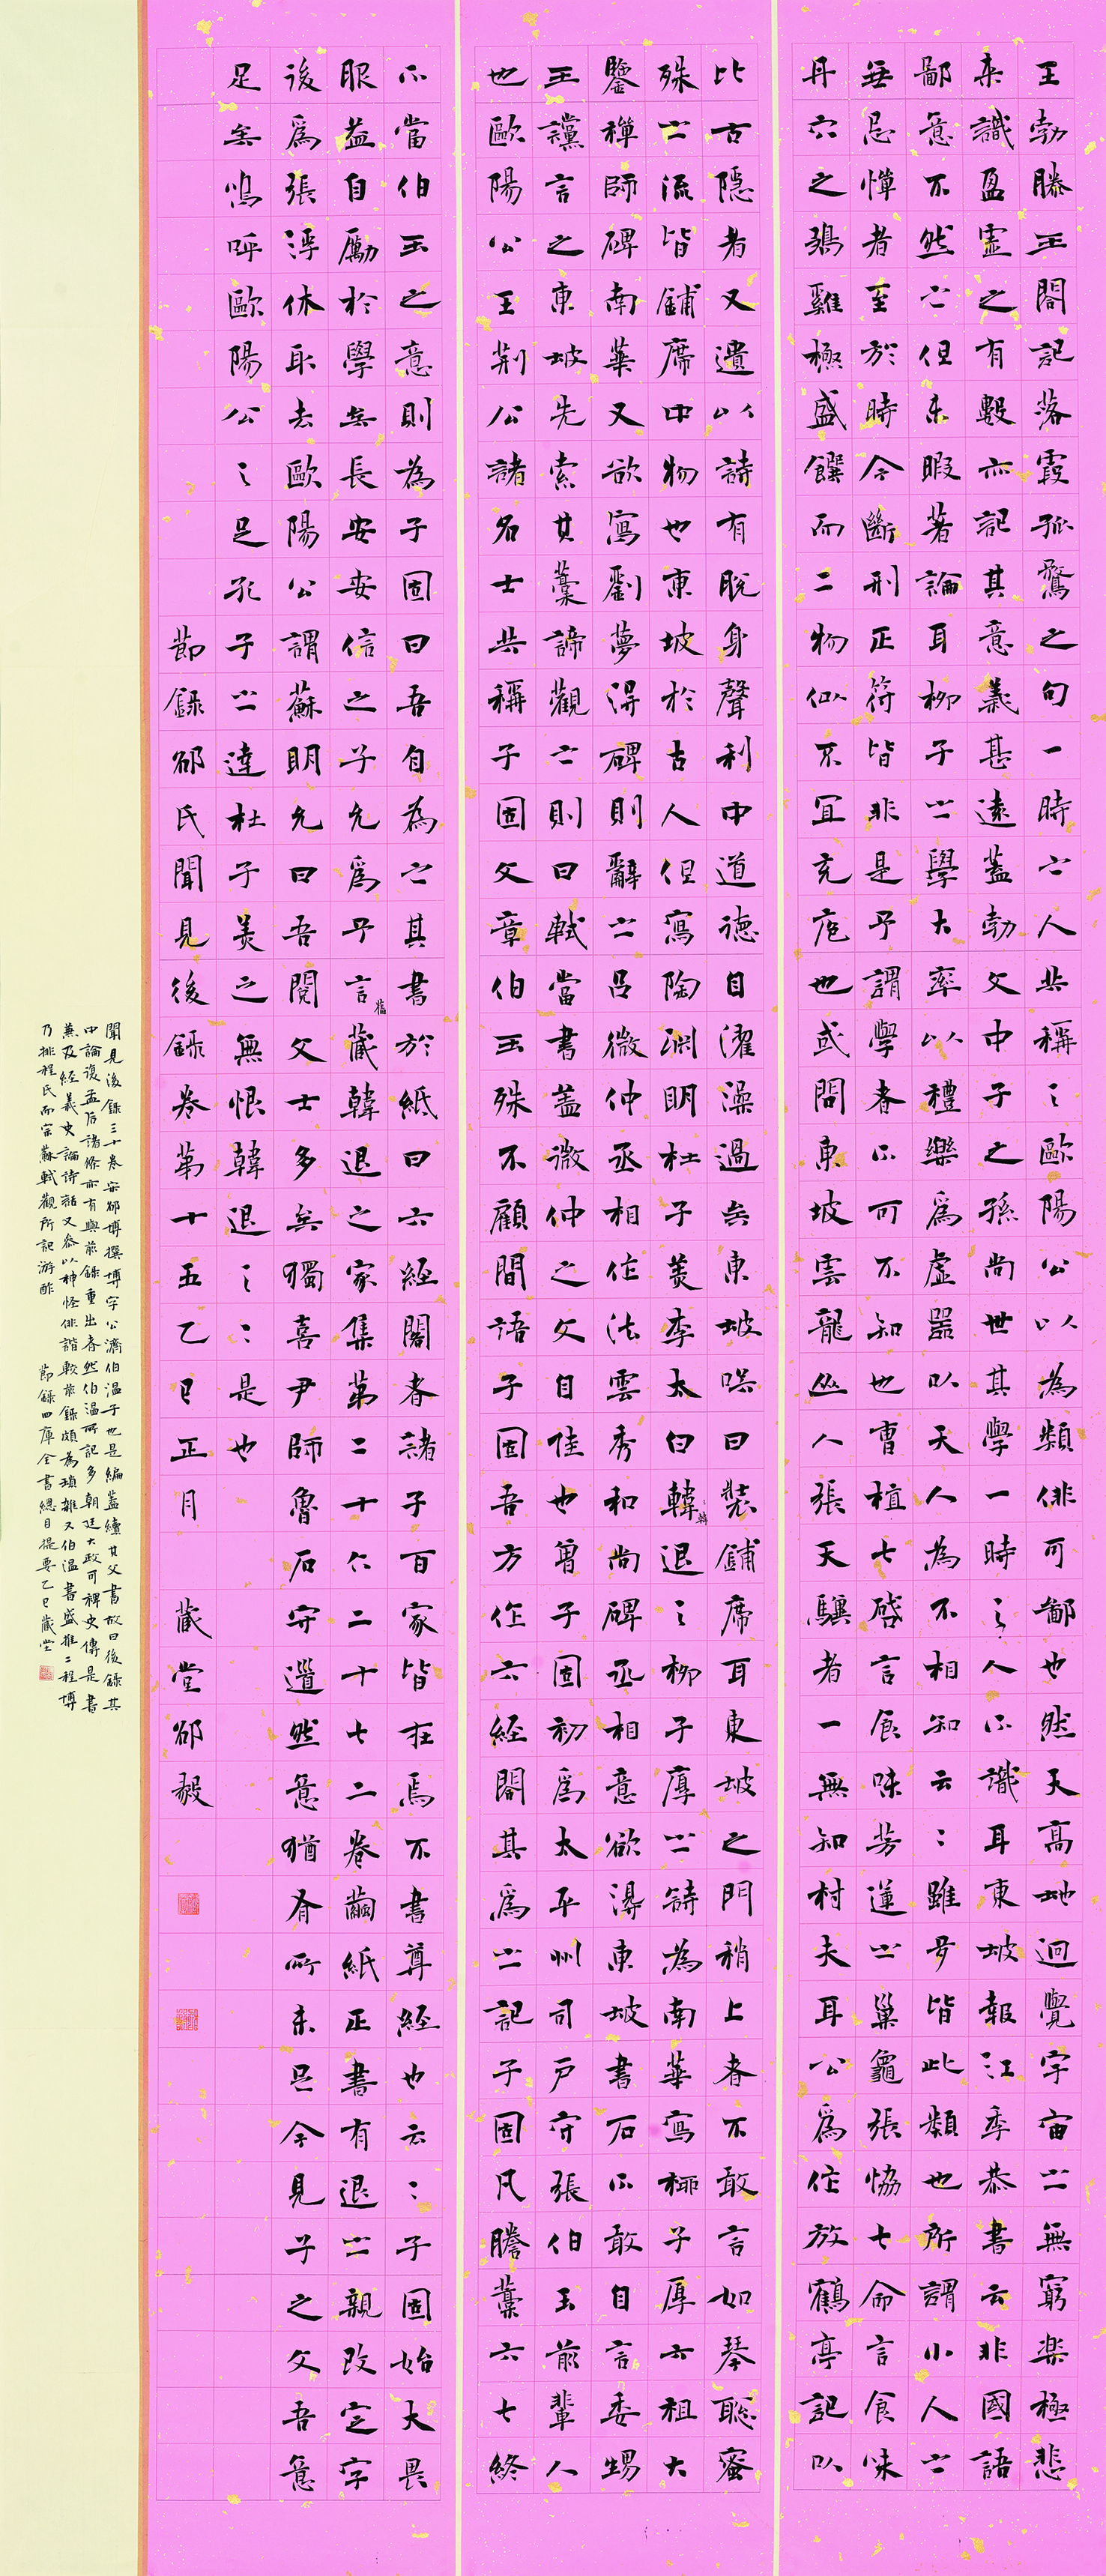 王勃滕王閣記落霞孤鶩之句一時之人共稱之歐陽公以為類俳可鄙也然天高地迥覺宇宙之無窮樂極悲
来識盈虛之有數亦記其意義甚遠蓋勃文中子之孫尚世其學一時之人不識耳東坡報江季恭書云非國語
鄙意不然之但未暇著論耳柳子之學大率以禮樂為虛器以天人為不相知云云雖多皆此類也所謂小人之
無忌憚者至於時令斷刑正符皆非是予謂學者不可不知也曹植七啓言食味芳蓮之巢龜張協七命言食味
丹穴之鷃雞極盛饌而二物似不宜充庖也或問東坡雲龍山人張天驥者一無知村夫耳公為作放鶴亭記以
比古隱者又遺以詩有脫身聲利中道德自濯澡過矣東坡笑曰裝鋪席耳東坡之門稍上者不敢言如琴聰蜜
殊之流皆鋪席中物也東坡於古人但寫陶淵明杜子美李太白韓退之柳子厚之詩為南華寫柳子厚六祖大
鑒禪師碑南華又欲寫劉夢得碑則辭之呂微仲丞相作法雲秀和尚碑丞相意欲得東坡書石不敢自言委甥
王讜言之東坡先索其藁諦觀之則曰軾當書蓋微仲之文自佳也曾子固初為太平州司戶守張伯玉前輩人
也歐陽公王荊公諸名士共稱子固文章伯玉殊不顧間語子固吾方作六經閣其為之記子固凡謄藁六七終
不當伯玉之意則為子固曰吾自為之其書於紙曰六經閣者諸子百家皆在焉不書尊經也云云子固始大畏
服益自勵於學矣長安安信之子允為予言舊藏韓退之家集第二十六二十七二卷繭紙正書有退之親改定字
後為張浮休取去歐陽公謂蘇明允曰吾閱文士多矣獨喜尹師魯石守道然意猶有所未足今見子之文吾意
足矣嗚呼歐陽公之足孔子之達杜子美之無恨韓退之之是也
節錄邵氏聞見後錄卷第十五乙巳正月 藏堂邵毅
聞見後錄三十卷宋邵博撰博字公濟伯溫子也是編蓋續其父書故曰後錄其
中論復孟后諸條亦有與前錄重出者然伯溫所記多朝廷大政可裨史傳是書
兼及經義史論詩話又參以神怪俳諧較前錄頗為瑣雜又伯溫書盛推二程博
乃排程氏而宗蘇軾觀所記游酢 節錄四庫全書總目提要乙巳藏堂